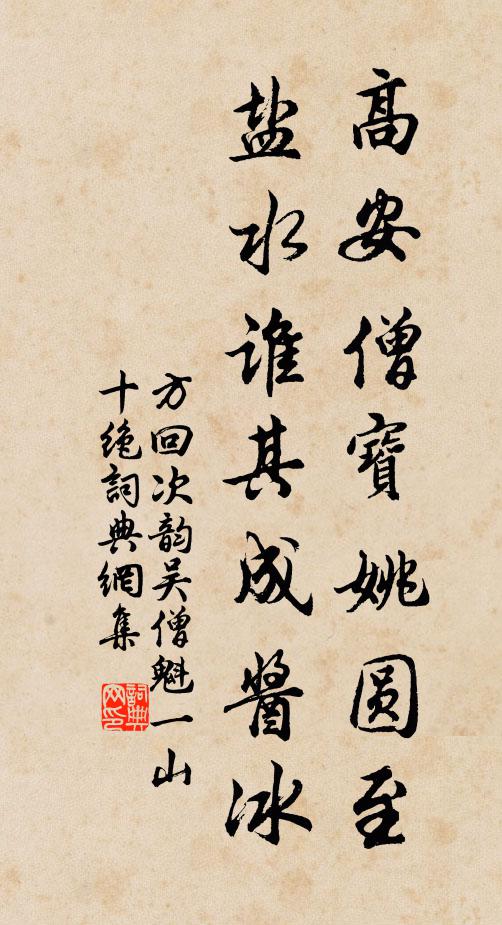 高安僧寶姚圆至
盐水谁其成醬冰
方回次韵吴僧魁一山
十绝詞典網集
詞典網印